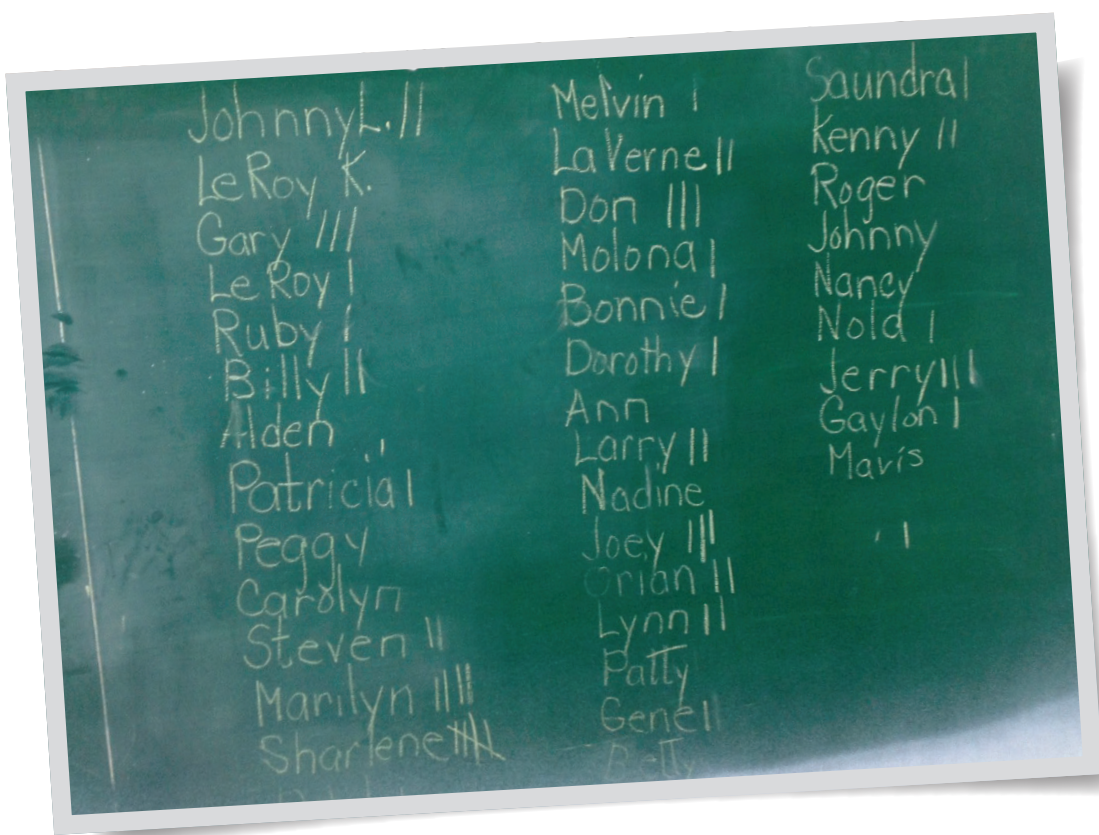 Johnny L. II
LeRoy K.
Gary III
LeRoy I
Ruby I
Billy II
Alden
Patricia I
Peggy
Carolyn
Steven II
Marilyn IIII
Sharlene IIII
Melvin I
LaVerne II
Don III
Molona I
Bonnie I
Dorothy I
Ann
Larry II
Nadine
Joey III
Orian II
Lynn II
Patty
Gene II
Betty
Saundra I
Kenny II
Roger
Johnny
Nancy
Nola I
Jerry III
Gaylon I
Mavis